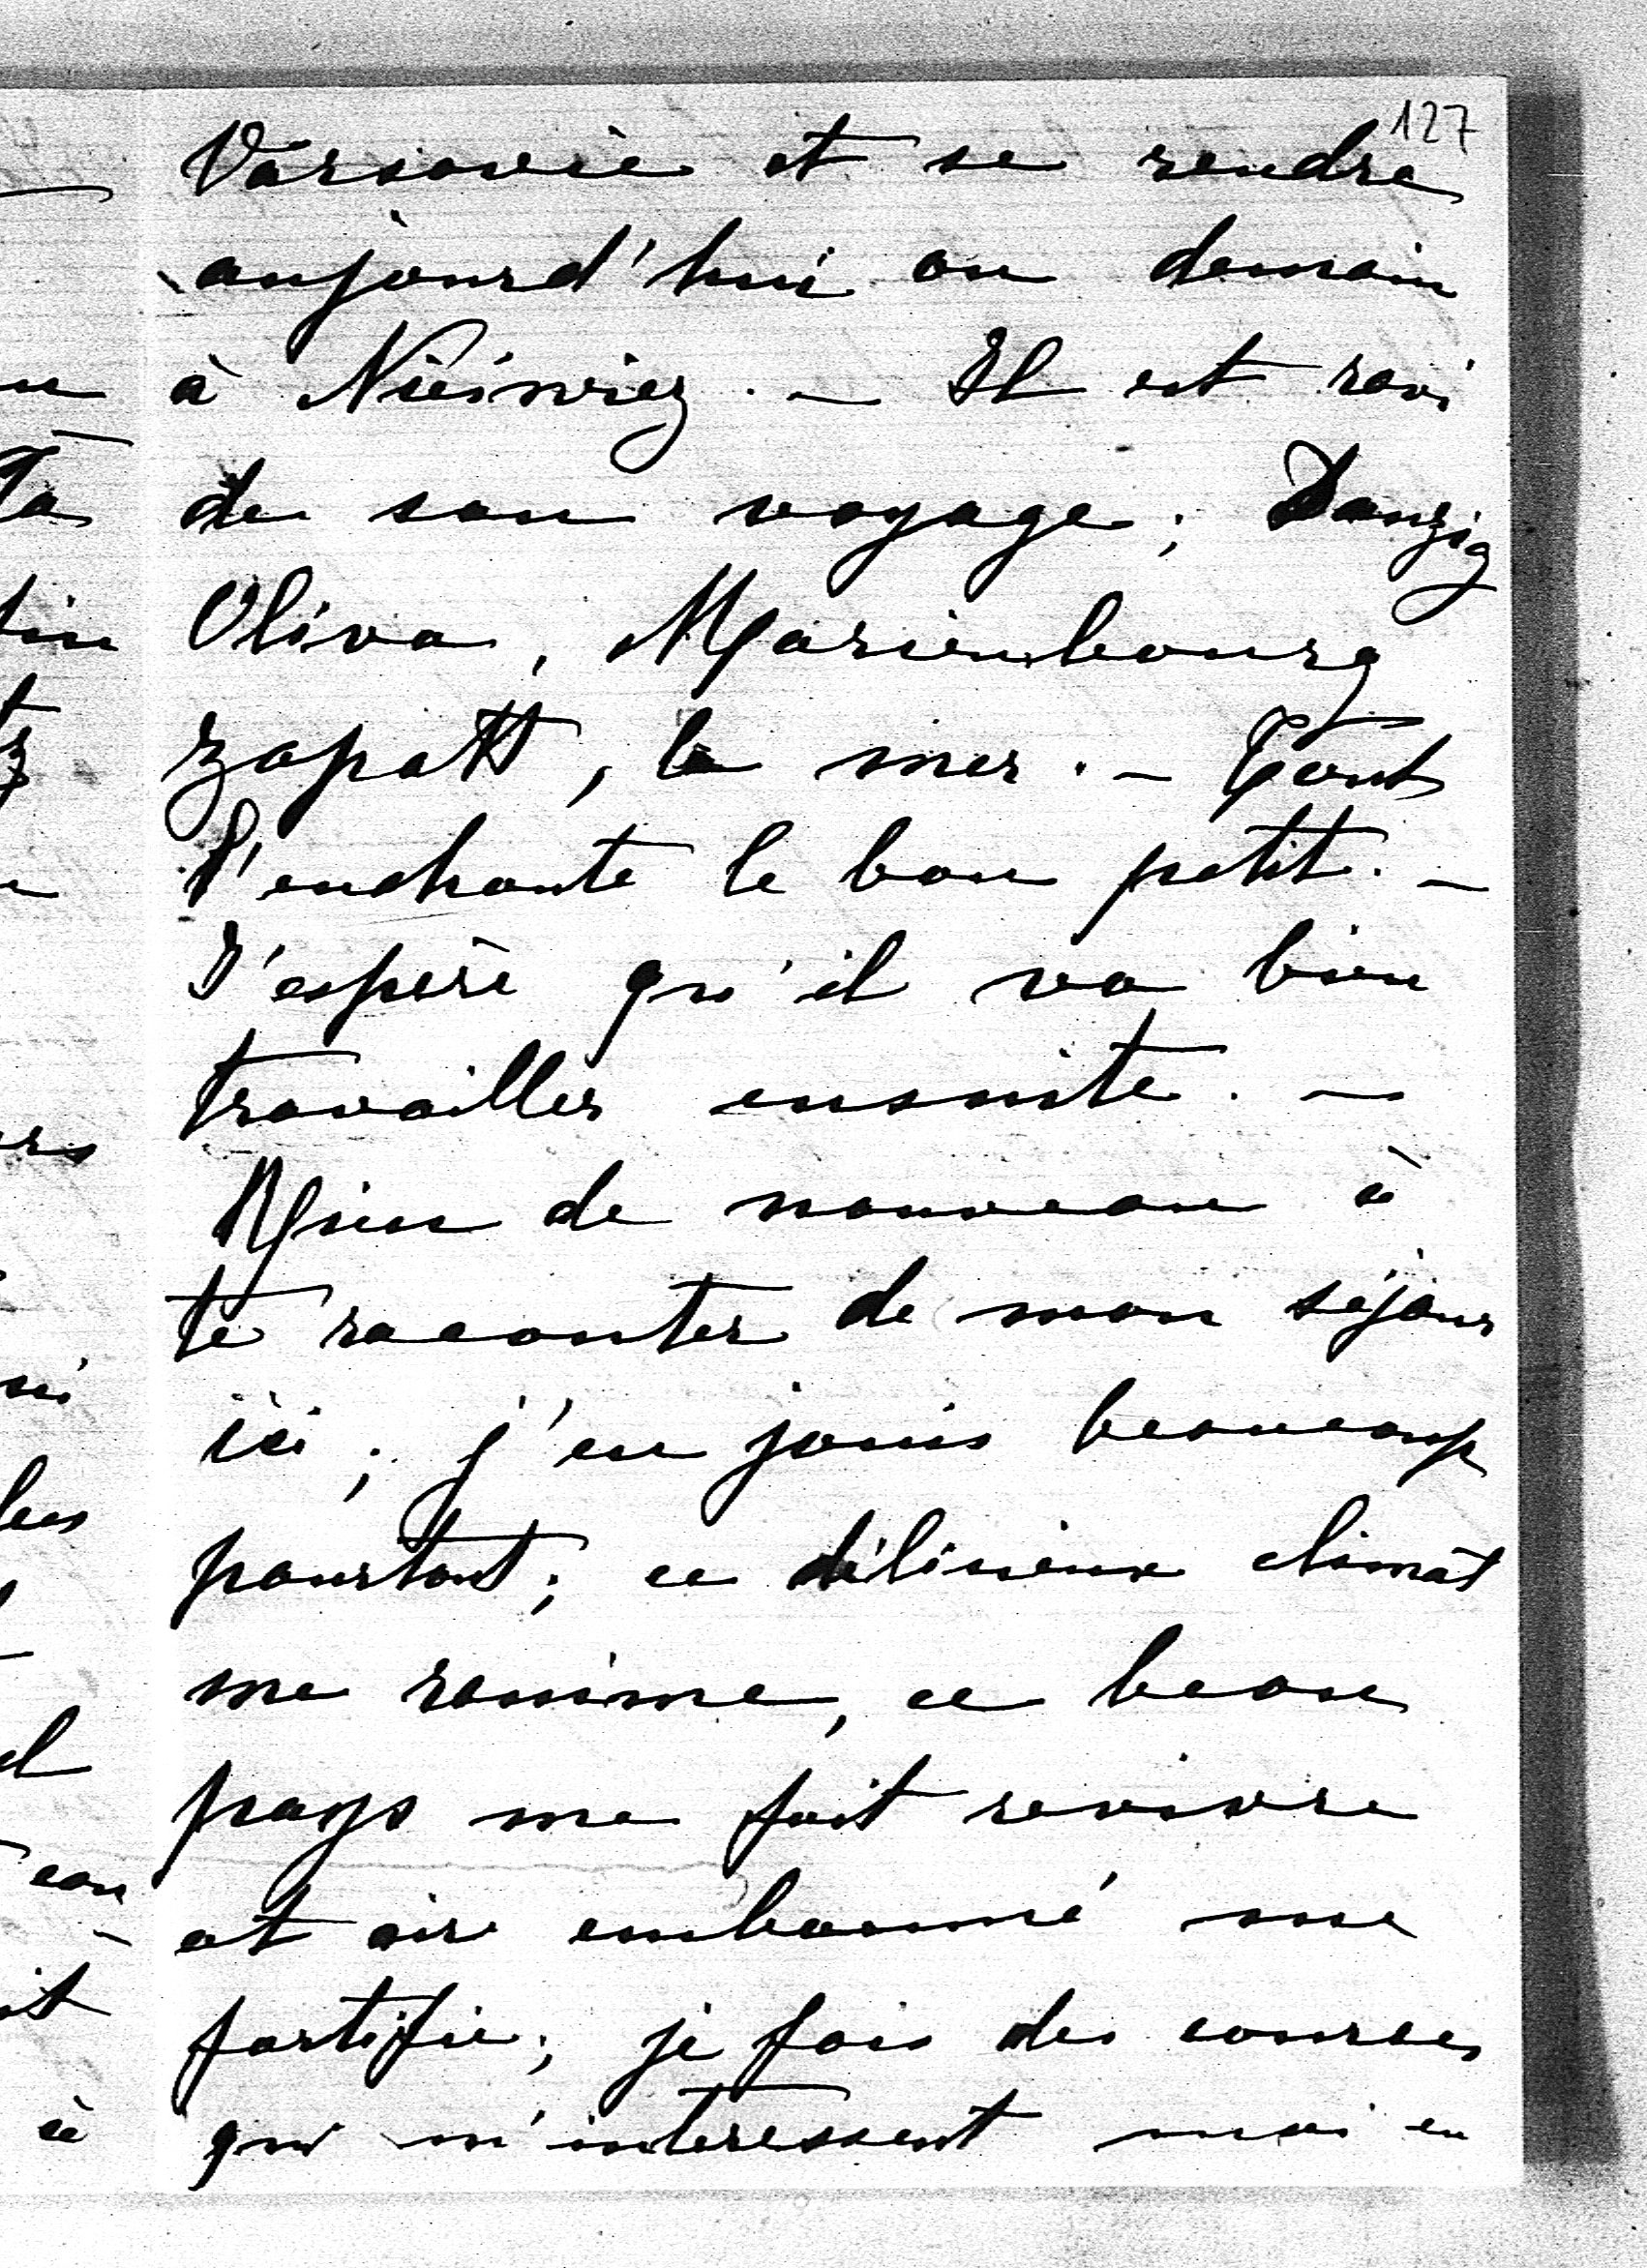 127
Varsovie et se rendre
aujourd'hui ou demain
à Nieswiez. — Il est ravi
de son voyage; Danzig
Oliva, Marienbourg
Zopott, la mer. — Tout
l'enchante le bon petit. —
J'espère qu'il va bien
travailler ensuite. —
Rien de nouveau à
te raconter de mon séjour
ici; j'en jouis beaucoup
pourtant; ce délicieux climat
me ranime, ce beau
pays me fait revivre
et air embaumé me
fortifie; je fais des courses
qui m'interessent moi en